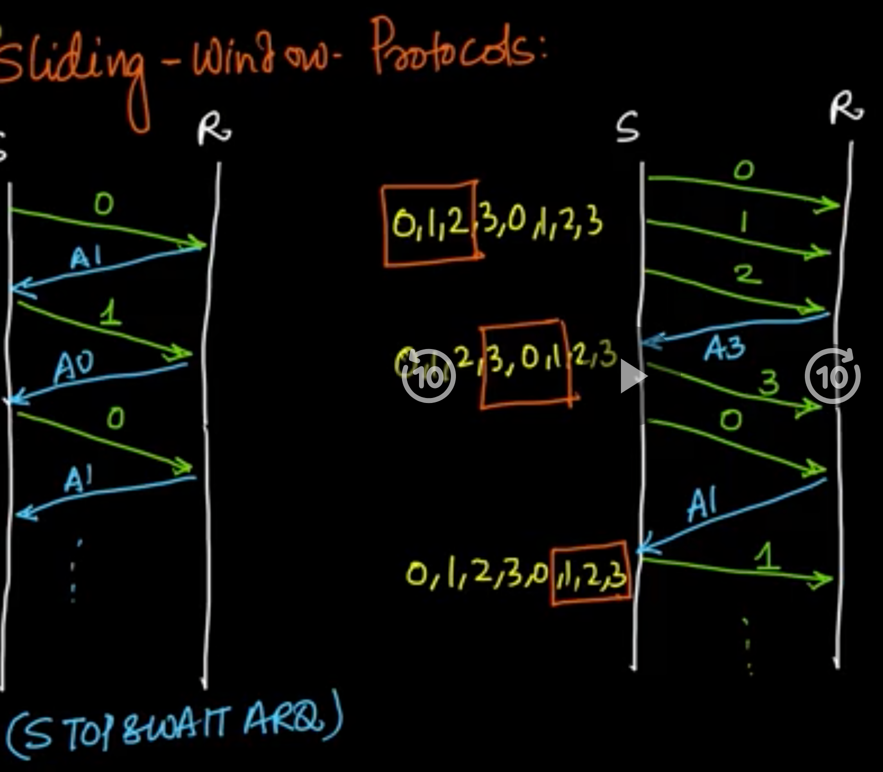 Sliding-Window-Protocols:
S R
0
A1
1
A0
0
A1
(STOP&WAIT ARQ)
S R
0,1,2,3,0,1,2,3
0
1
2
A3
0,1,2,3,0,1,2,3
10
10
3
0
A1
0,1,2,3,0,1,2,3
1